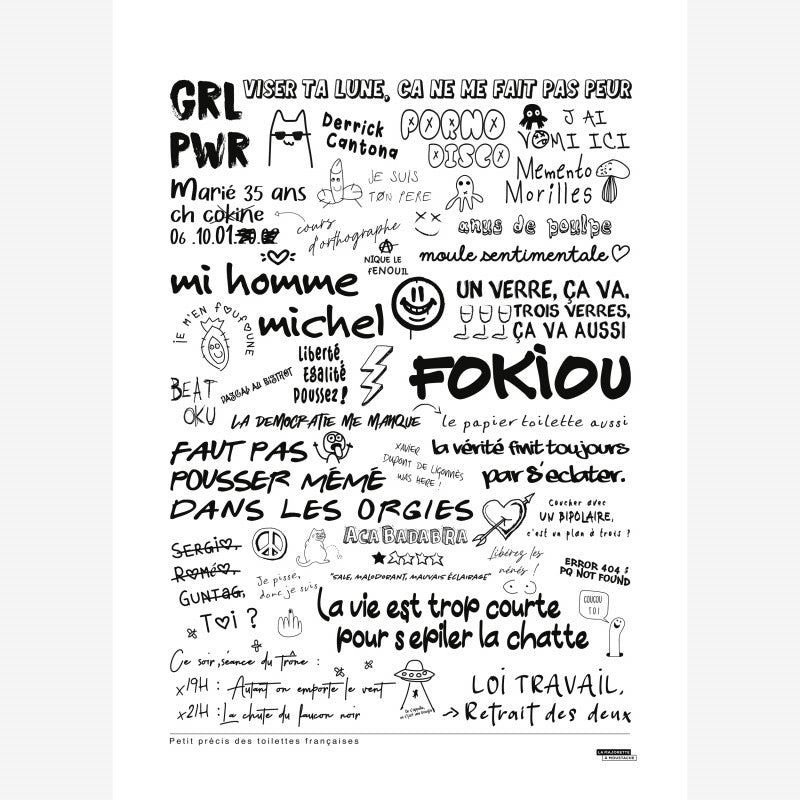 GRL
PWR
VISER TA LUNE, CA NE ME FAIT PAS PEUR
Derrick
Cantona
PORNO
DISCO
J'AI
VOMI ICI
Marié 35 ans
ch cokine
06.10.01.
JE SUIS
TØN PERE
Memento
Morilles
cours
d'orthographe
anus de poulpe
NIQUE LE
FENOUIL
moule sentimentale
mi homme
michel
UN VERRE, ÇA VA.
TROIS VERRES,
ÇA VA AUSSI
JE M'EN FOUFOUNE
Liberté,
Egalité
Poussez!
FOKiOU
BEAT
OKU
PASCAL AU BISTROT
LA DEMOCRATIE ME MANQUE
le papier toilette aussi
FAUT PAS
POUSSER MÉMÉ
DANS LES ORGIES
XAVIER
DUPONT DE LIGONNÈS
WAS HERE!
la vérité finit toujours
par s'eclater.
Coucher avec
UN BIPOLAIRE,
c'est un plan à trois ?
SERGIO,
ROMÉO,
GUNTAG,
TOI ?
ACABADABRA
"SALE, MALODORANT, MAUVAIS ÉCLAIRAGE"
Libérez les
nénés !
ERROR 404 :
PQ NOT FOUND
Je pisse,
donc je suis
COUCOU
TOI
La vie est trop courte
pour s epiler la chatte
Ce soir, séance du trône :
x19H : Autant on emporte le vent
x21H : La chute du faucon noir
LOI TRAVAIL,
→ Retrait des deux
Petit précis des toilettes françaises
LA MAJORETTE
À MOUSTACHE